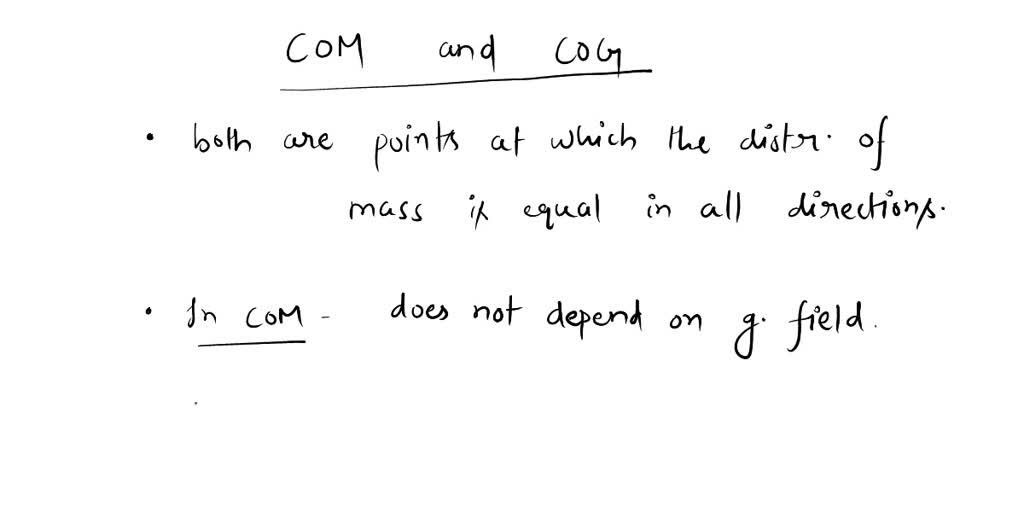 COM and COG
• both are points at which the distr. of
mass is equal in all directions.
• In COM - does not depend on g. field.